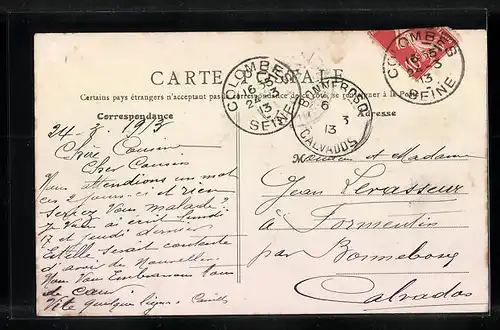 CARTE POSTALE
Certains pays étrangers n'acceptant pas la Correspondance de ce côté, se renseigner à la Poste
Correspondance
Adresse
COLOMBES
16 35
24 3
13
SEINE
COLOMBES
16 35
24 3
13
SEINE
BONNEBOSQ
6
3
13
CALVADOS
24-3-1913
Chère Cousine
Cher Cousin
Nous attendions un mot
ces 2 jours-ci et rien
Seriez Vous malade ?
Lundi
17 et jeudi dernier
Estelle serait contente
d'avoir de nouvelles
Nous Vous Embrassons tous
de cœur
Vite quelque lignes.
Monsieur et Madame
Jean Levasseur
à Formentin
par Bonnebosq
Calvados